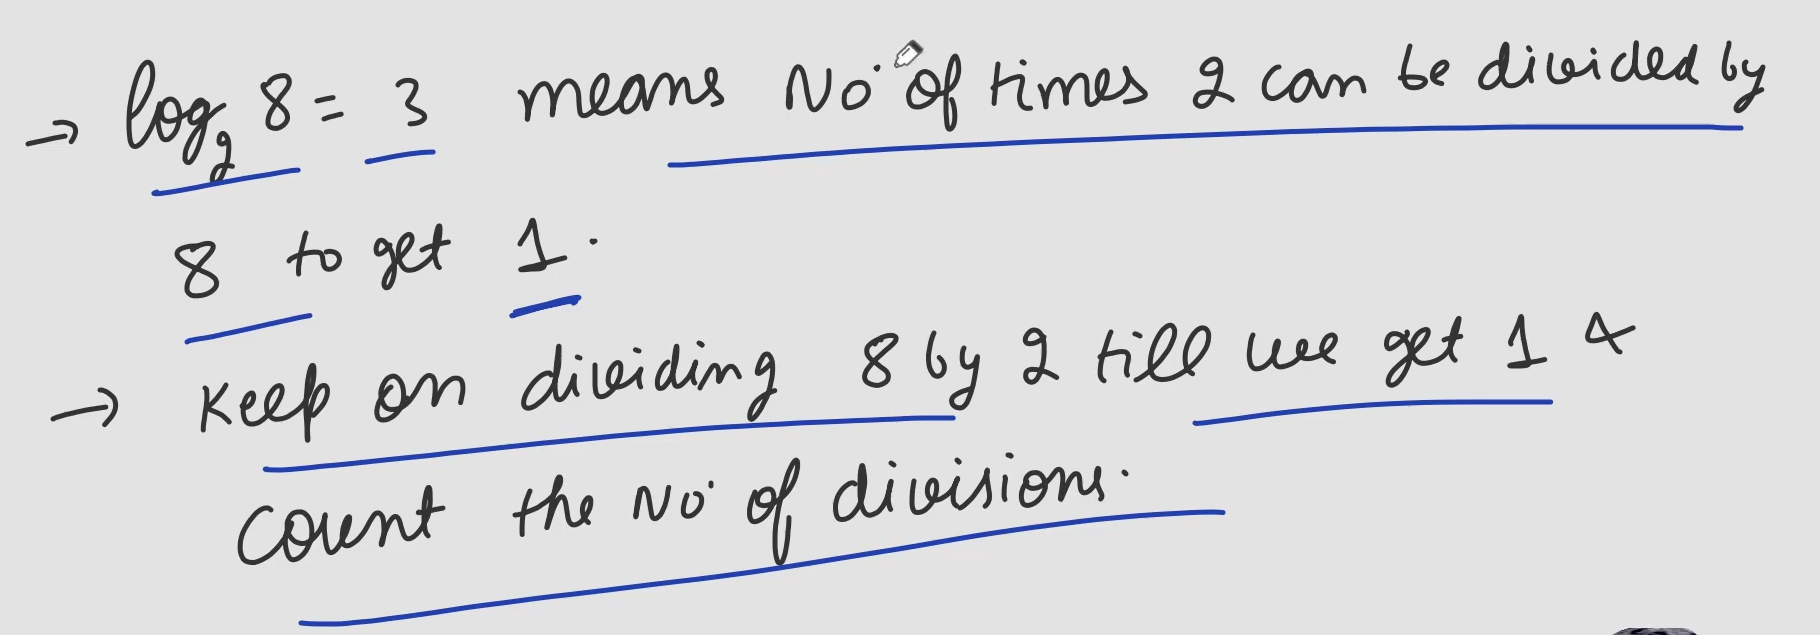 → log₂ 8 = 3 means No. of times 2 can be divided by
8 to get 1.
→ Keep on dividing 8 by 2 till we get 1 &
Count the No. of divisions.